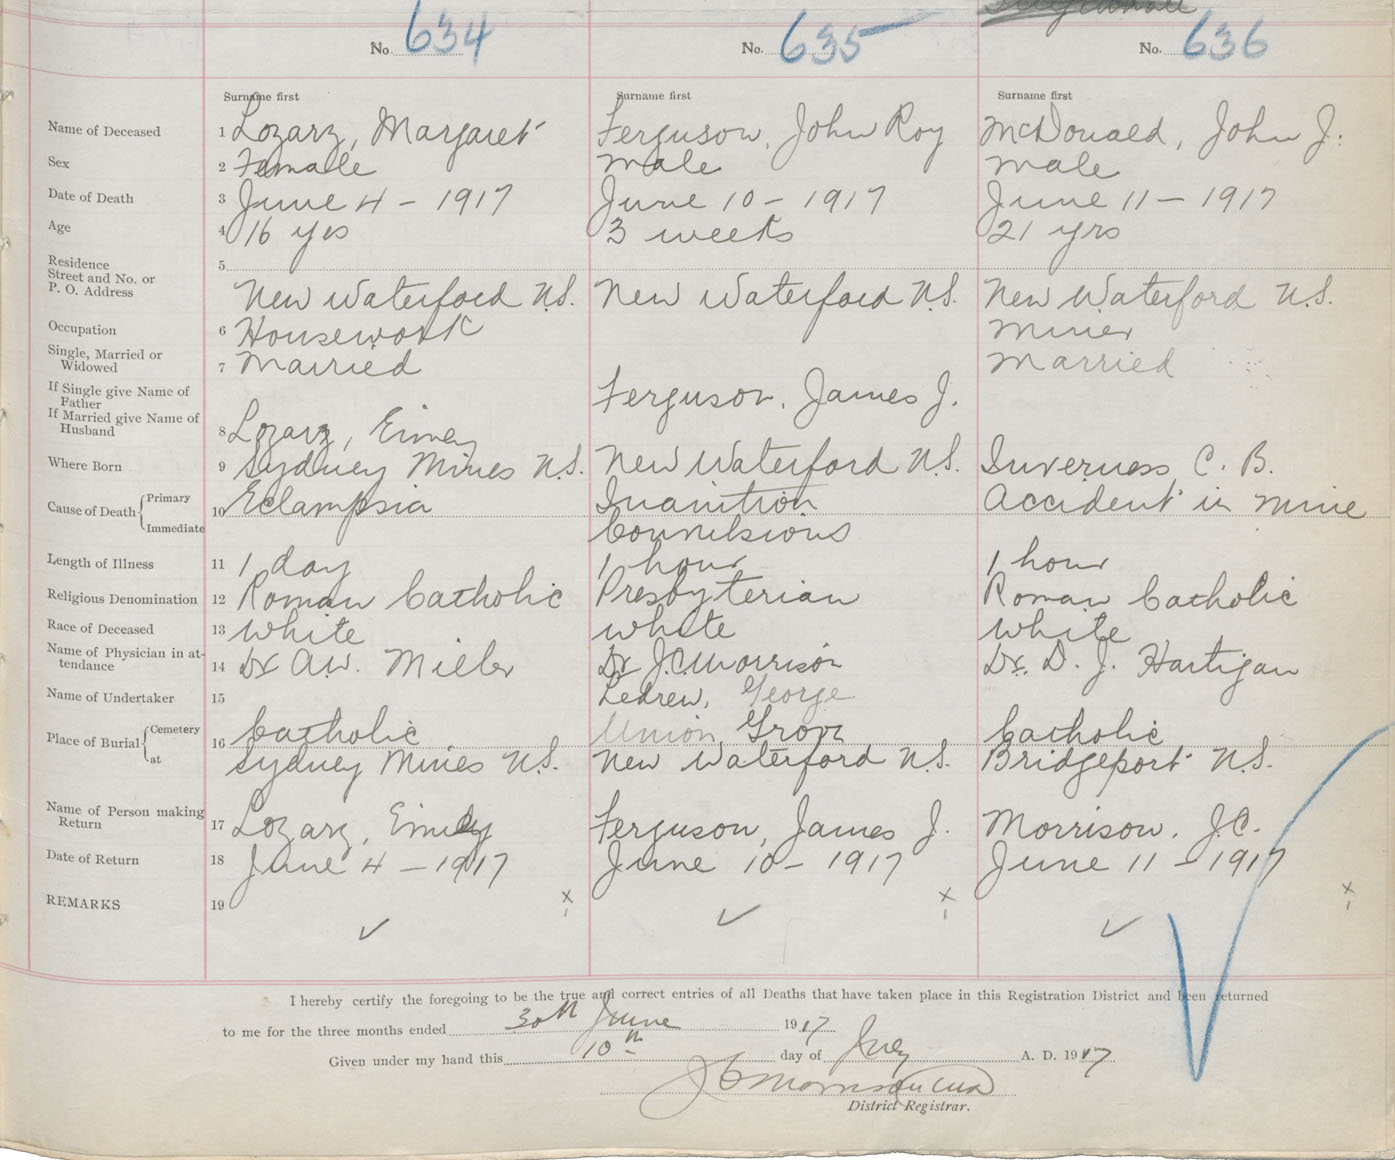 No. 634 No. 635 No. 636
Surname first Surname first Surname first
Name of Deceased 1 Lozarz, Margaret Ferguson, John Roy McDonald, John J.
Sex 2 Female Male Male
Date of Death 3 June 4 - 1917 June 10 - 1917 June 11 - 1917
Age 4 16 yrs 3 weeks 21 yrs
Residence 5
Street and No. or
P. O. Address New Waterford N.S. New Waterford N.S. New Waterford N.S.
Occupation 6 Housework Miner
Single, Married or
Widowed 7 Married Married
If Single give Name of
Father Ferguson, James J.
If Married give Name of
Husband 8 Lozarz,
Where Born 9 Sydney Mines N.S. New Waterford N.S. Inverness C. B.
Cause of Death Primary 10 Eclampsia Inanition Accident in mine
Immediate Counvilsions
Length of Illness 11 1 day 1 hour 1 hour
Religious Denomination 12 Roman Catholic Presbyterian Roman Catholic
Race of Deceased 13 White White White
Name of Physician in at-
tendance 14 Dr A.W. Miller Dr J.C. Morrison Dr. D. J. Hartigan
Name of Undertaker 15 Ledrew, George
Place of Burial Cemetery 16 Catholic Union Grove Catholic
at Sydney Mines N.S. New Waterford N.S. Bridgeport N.S.
Name of Person making
Return 17 Lozarz, Ferguson, James J. Morrison, J.C.
Date of Return 18 June 4 - 1917 June 10 - 1917 June 11 - 1917
REMARKS 19 x x x
I hereby certify the foregoing to be the true and correct entries of all Deaths that have taken place in this Registration District and been returned
to me for the three months ended 30th June 1917
Given under my hand this 10th day of July A. D. 1917
J C Morrison
District Registrar.